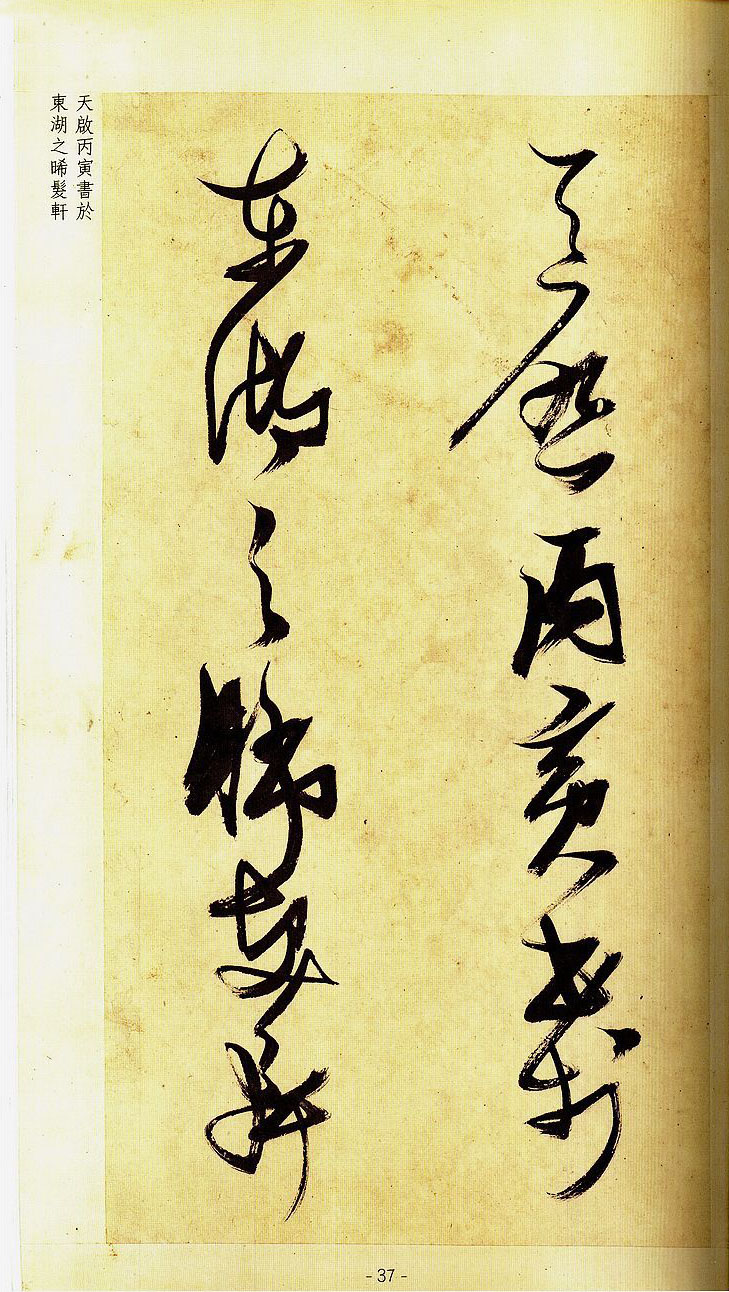 天啟丙寅書於
東湖之晞髮軒
天啟丙寅書於
東湖之晞髮軒
- 37 -